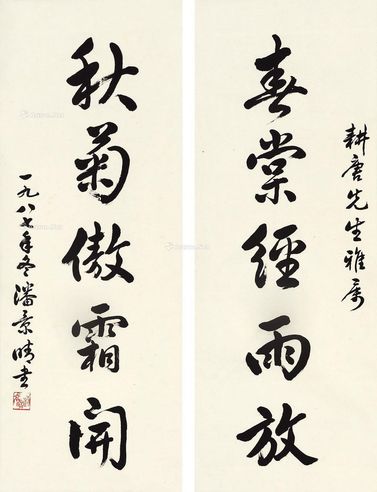 耕唐先生雅属
春棠經雨放
秋菊傲霜開
一九八七年冬潘景晴书